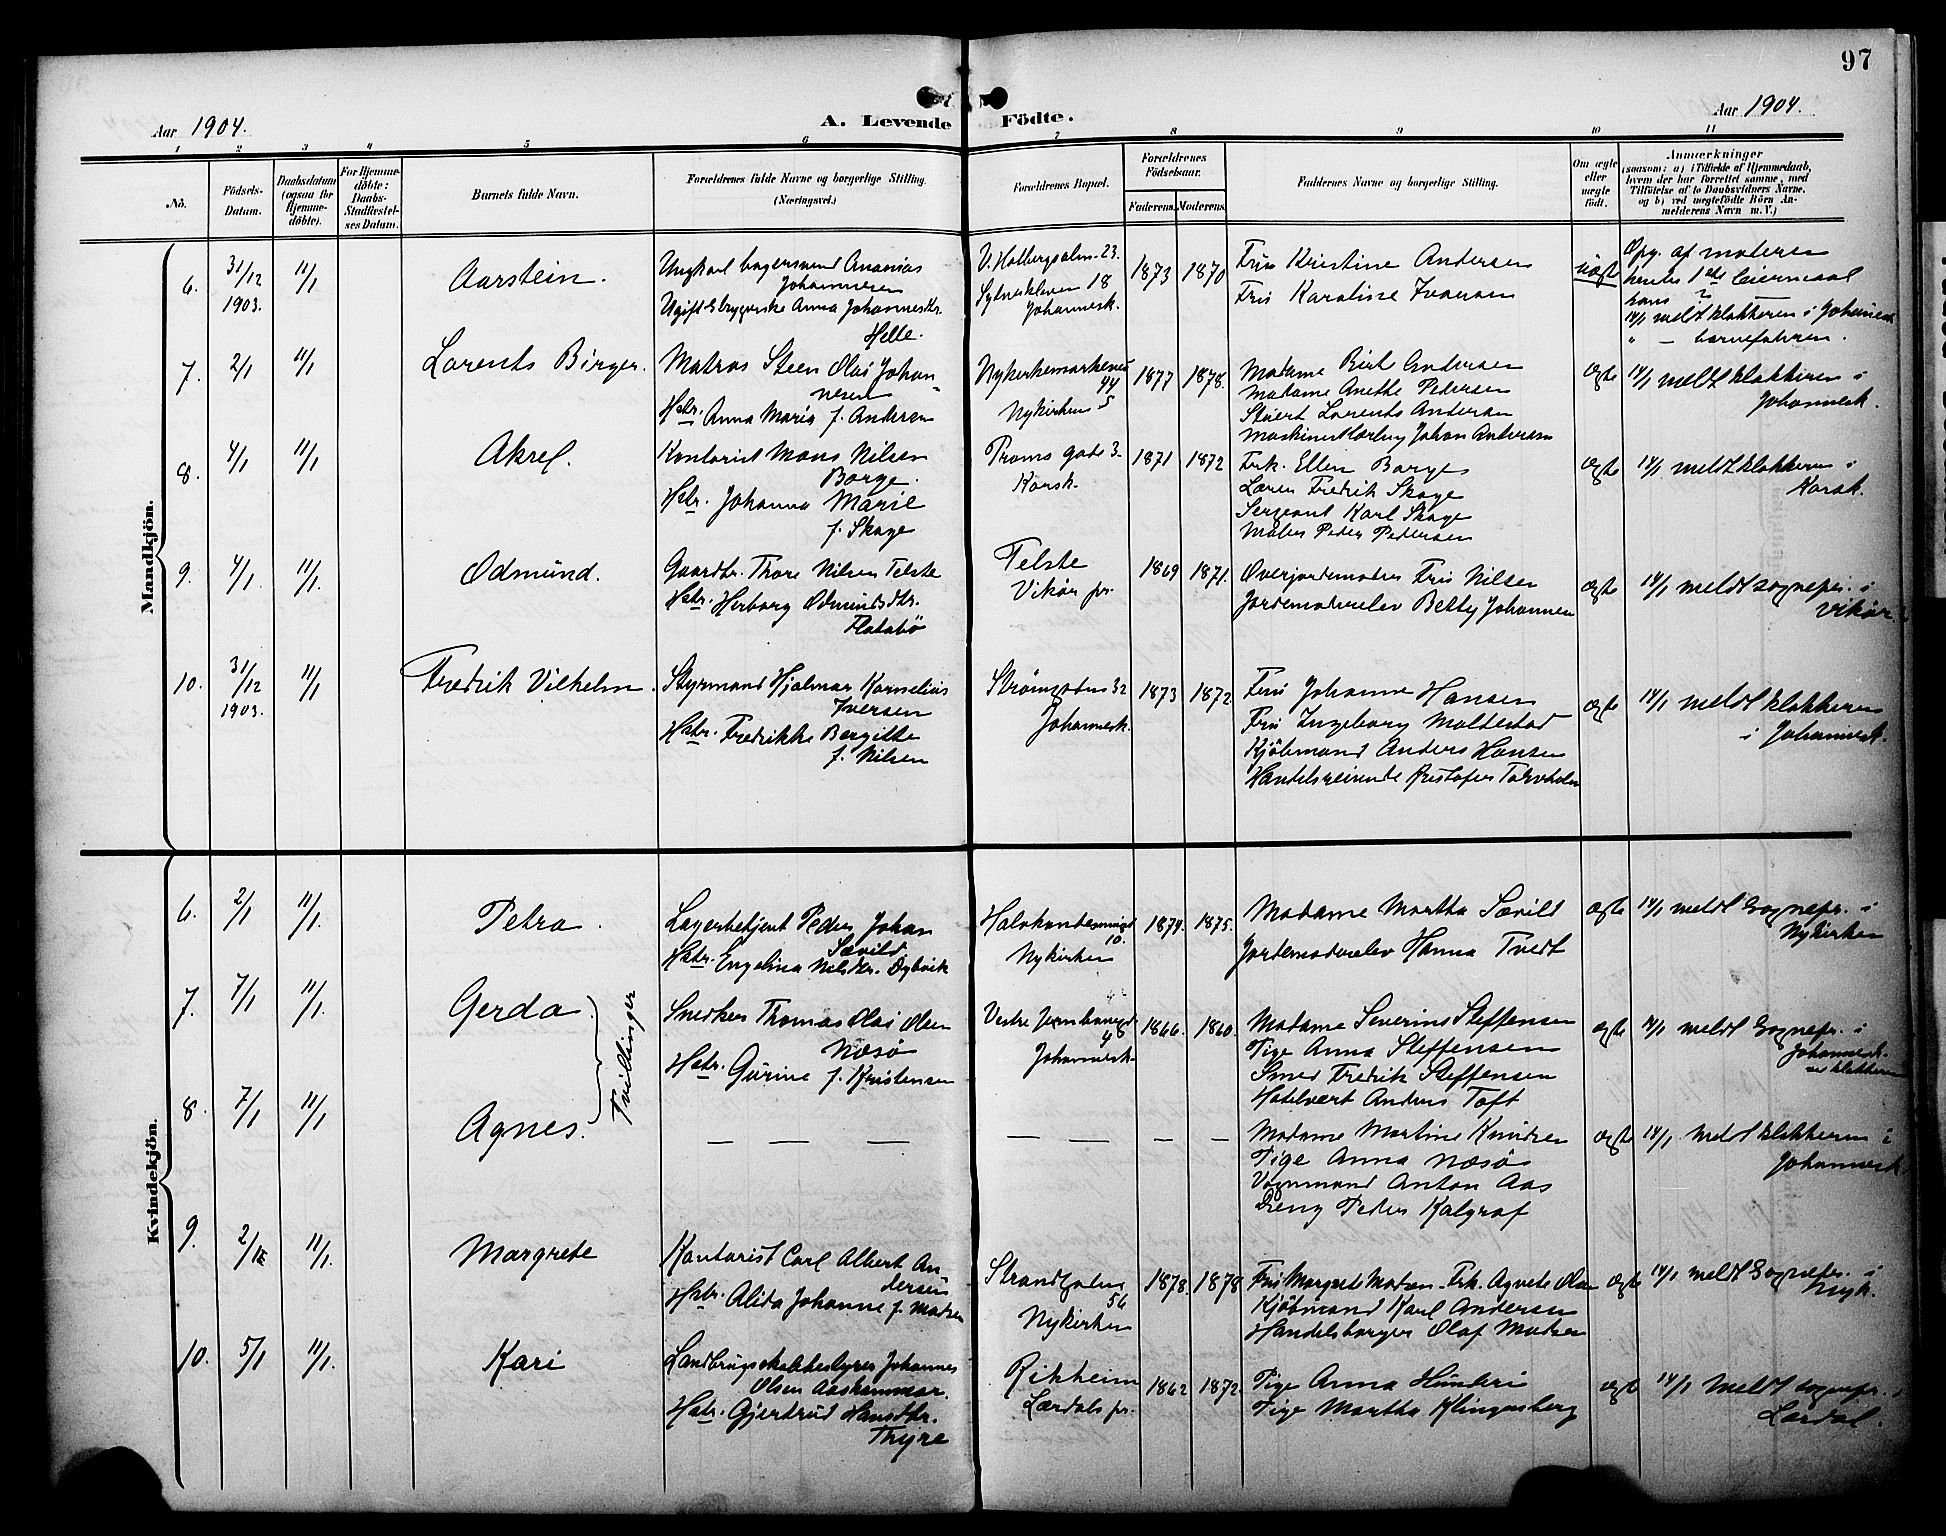 97
Aar 1904.
A. Levende Födte.
Aar 1904.
1 2 3 4 5 6 7 8 9 10 11
No.
Födsels-
Datum.
Daabsdatum
(ogsaa for
Hjemme-
döbte).
For Hjemme-
döbte:
Daabs-
Stadfæstel-
ses Datum.
Barnets fulde Navn.
Forældrenes fulde Navne og borgerlige Stilling.
(Næringsvei.)
Forældrenes Bopæl.
Forældrenes
Födselsaar.
Faderens. Moderens.
Faddernes Navne og borgerlige Stilling.
Om ægte
eller
uægte
födt.
Anmærkninger
(saasom: a) i Tilfælde af Hjemmedaab,
hvem der har forrettet samme, med
Tilföielse af to Daabsvidners Navne,
og b) ved uægtefödte Börn An-
melderens Navn m. V.)
Mandkjön.
6.
31/12
1903.
11/1
Aarstein.
Ungkarl bagersvend Ananias
Johannesen
Ugift Anna Johannesdtr.
Helle.
V. Holbergsalm. 23.
18
Johannesk.
1873
1870
Frü Kristine Andersen
Frü Karoline Ivarsen
uægte
Opg. af moderen
hendes 1ste leiermaal
hans 2
14/1 meldt klokkeren i Johannesk
" — barnefaderen.
7.
2/1
11/1
Lorents Birger.
Matros Steen Olai Johan-
nesen
Hstr. Anna Maria f. Andersen
Nykirkemarkenes
44
Nykirkens
1877
1878.
Madame Berit Andersen
Madame Anethe Petersen
Stuert Lorents Andersen
Johan Andersen
ægte
14/1 meldt klokkeren i
Johannesk.
8.
4/1
11/1
Aksel.
Kontorist Mons Nilsen
Borge.
Hstr. Johanna Marie
f. Skage
Proms gade 3
Korsk.
1871
1872
Frk. Ellen Borge
Lærer Fredrik Skage
Sergeant Karl Skage
Maler Peder Pedersen
ægte
14/1 meldt klokkeren i
Korsk.
9.
4/1.
11/1.
Odmünd.
Gaardbr. Thore Nilsen Telste
Hstr. Herborg Odmundsdtr.
Flatabö
Telste
Vikör pr.
1869
1871.
Overjordemoder Frü Nilsen
Jordemoderelev Betty Johannesen
ægte
14/1 meldt sognepr. i
Vikör.
10.
31/12
1903.
11/1
Fredrik Vilhelm.
Styrmand Hjalmar Kornelius
Iversen
Hstr. Fredrikke Bergitte
f. Nilsen
Strömgaden 32
Johannesk.
1873
1872
Frü Johanne Hansen
Frü Ingeborg Moltestad
Kjöbmand Anders Hansen
Handelsreisende Kristofer
ægte
14/1 meldt klokkeren
i Johannesk.
Kvindekjön.
6.
2/1
11/1.
Petra.
Lagerbetjent Peder Johan
Sævild
Hstr. Engelina Nilsdtr. Dybvik
10.
Nykirken
1874.
1875.
Madame Martha Sævild
Jordemoderelev Hanna Tvedt
ægte
14/1 meldt Sognepr. i
Nykirken
7.
7/1
11/1.
Gerda.
Tvillinger
Snedker Thomas Olai Olsen
Næsö
Hstr. Gurine f. Kristensen
Johannesk.
1866.
1860.
Madame Severine Steffensen
Pige Anna Steffensen
Smed Fredrik Steffensen
Hotelvært Anders Toft
ægte
14/1 meldt Sognepr. i
Johannesk.
ved klokkeren
8.
7/1
11/1
Agnes.
— — —
— — — —
Madame Martine Knudsen
Pige Anna Næsö
Vognmand Anton Aas
Dreng Peder Kalgraf
ægte
14/1 meldt klokkeren i
Johannesk.
9.
11/1.
Margrete
Kontorist Carl Albert An-
dersen
Hstr. Alida Johanne f. Madsen
Strandgaden
56
Nykirken
1878.
1878
Frü Margrete Madsen. Frk. Agnete Olsen
Kjöbmand Karl Andersen
Handelsborger Olaf Madsen
ægte
14/1 meldt Sognepr. i
Nyk.
10.
5/1
11/1.
Kari
Landbrugsskolebestyrer Johannes
Olsen Aaskammar.
Hstr. Gjertrud Hansdtr.
Thyre
Rikheim
Lærdals pr.
1862
1872.
Pige Anna
Pige Martha Klingenberg
ægte
14/1 meldt sognepr. i
Lærdal.